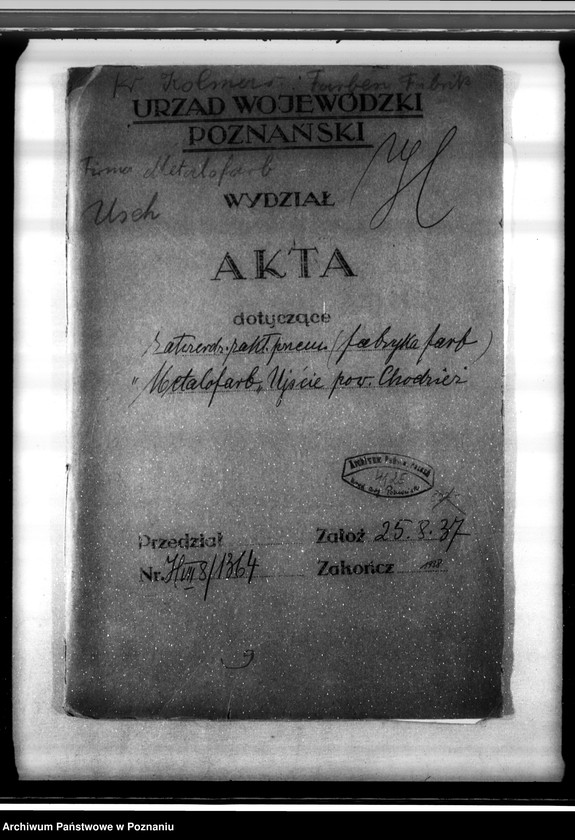 Kr. Kolmers. Farben Fabrik
URZĄD WOJEWÓDZKI
POZNAŃSKI
Firma Metalofarb
Usch
WYDZIAŁ
AKTA
dotyczące
zatwierdz. zakł. przem. (fabryka farb)
"Metalofarb" Ujście pow. Chodzież
Archiwum Państw. Poznań
Urząd Woj. Poznański
Przedział Założ 25.8.37
Nr. 8/1364 Zakończ 1938
Archiwum Państwowe w Poznaniu